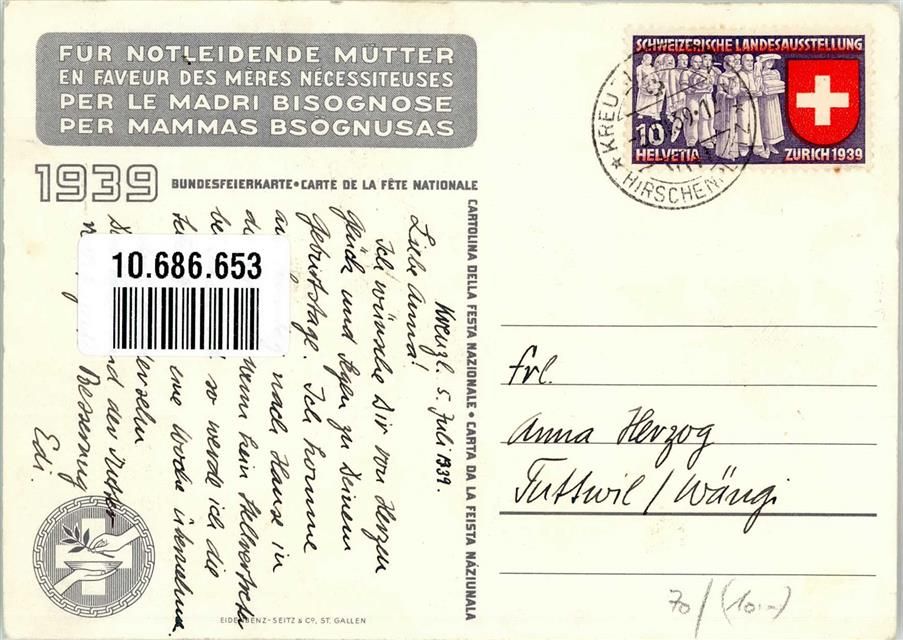 FÜR NOTLEIDENDE MÜTTER
EN FAVEUR DES MÈRES NÉCESSITEUSES
PER LE MADRI BISOGNOSE
PER MAMMAS BSÖGNUSAS
1939 BUNDESFEIERKARTE • CARTE DE LA FÊTE NATIONALE
CARTOLINA DELLA FESTA NAZIONALE • CARTA DA LA FEISTA NÁZIUNALA
SCHWEIZERISCHE LANDESAUSSTELLUNG
10
HELVETIA ZÜRICH 1939
KREU
HIRSCHEN
10.686.653
Kreuzl. 5. Juli 1939.
Liebe Anna!
Ich wünsche Dir von Herzen
Glück und Segen zu Deinem
Geburtstage. Ich komme
nach Hause in
kein Stellvertreter
so werde ich die
eine Woche übernehmen.
der Mutter
Besserung
Edi.
Frl.
Anna Herzog
Tuttwil / Wängi
EIDENBENZ-SEITZ & CO, ST. GALLEN
70 / (10.-)